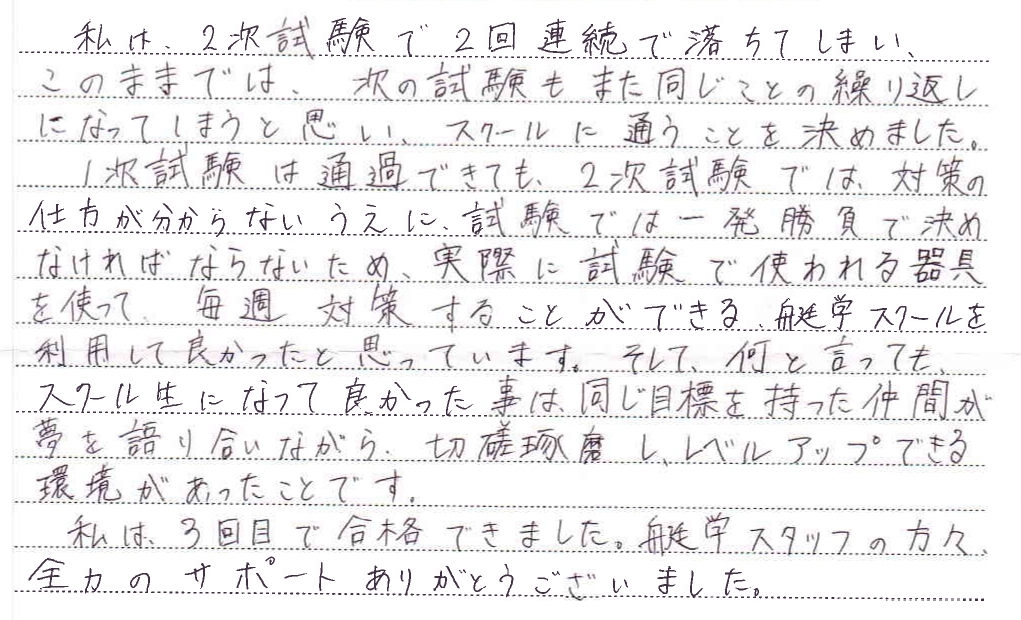 私は、2次試験で2回連続で落ちてしまい、
このままでは、次の試験もまた同じことの繰り返し
になってしまうと思い、スクールに通うことを決めました。
1次試験は通過できても、2次試験では、対策の
仕方が分からないうえに、試験では一発勝負で決め
なければならないため、実際に試験で使われる器具
を使って、毎週対策することができる、艇学スクールを
利用して良かったと思っています。そして、何と言っても、
スクール生になって良かった事は、同じ目標を持った仲間が
夢を語り合いながら、切磋琢磨し、レベルアップできる
環境があったことです。
私は、3回目で合格できました。艇学スタッフの方々、
全力のサポートありがとうございました。